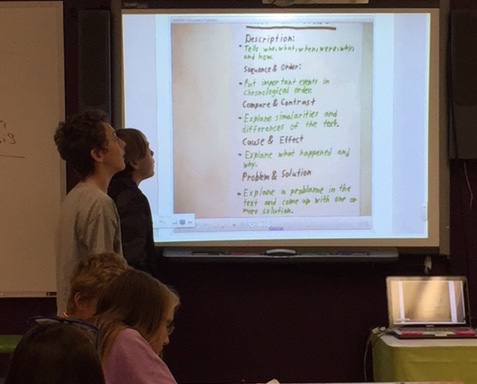 Description:
• Tells who, what, when, were, why,
and how.
Sequence & Order:
• Put important events in
Chronological order.
Compare & Contrast
• Explane simalarities and
differences of the text.
Cause & Effect
• Explane what happened and
why.
Problem & Solution
• Explane a problame in the
text and come up with one or
more solution.